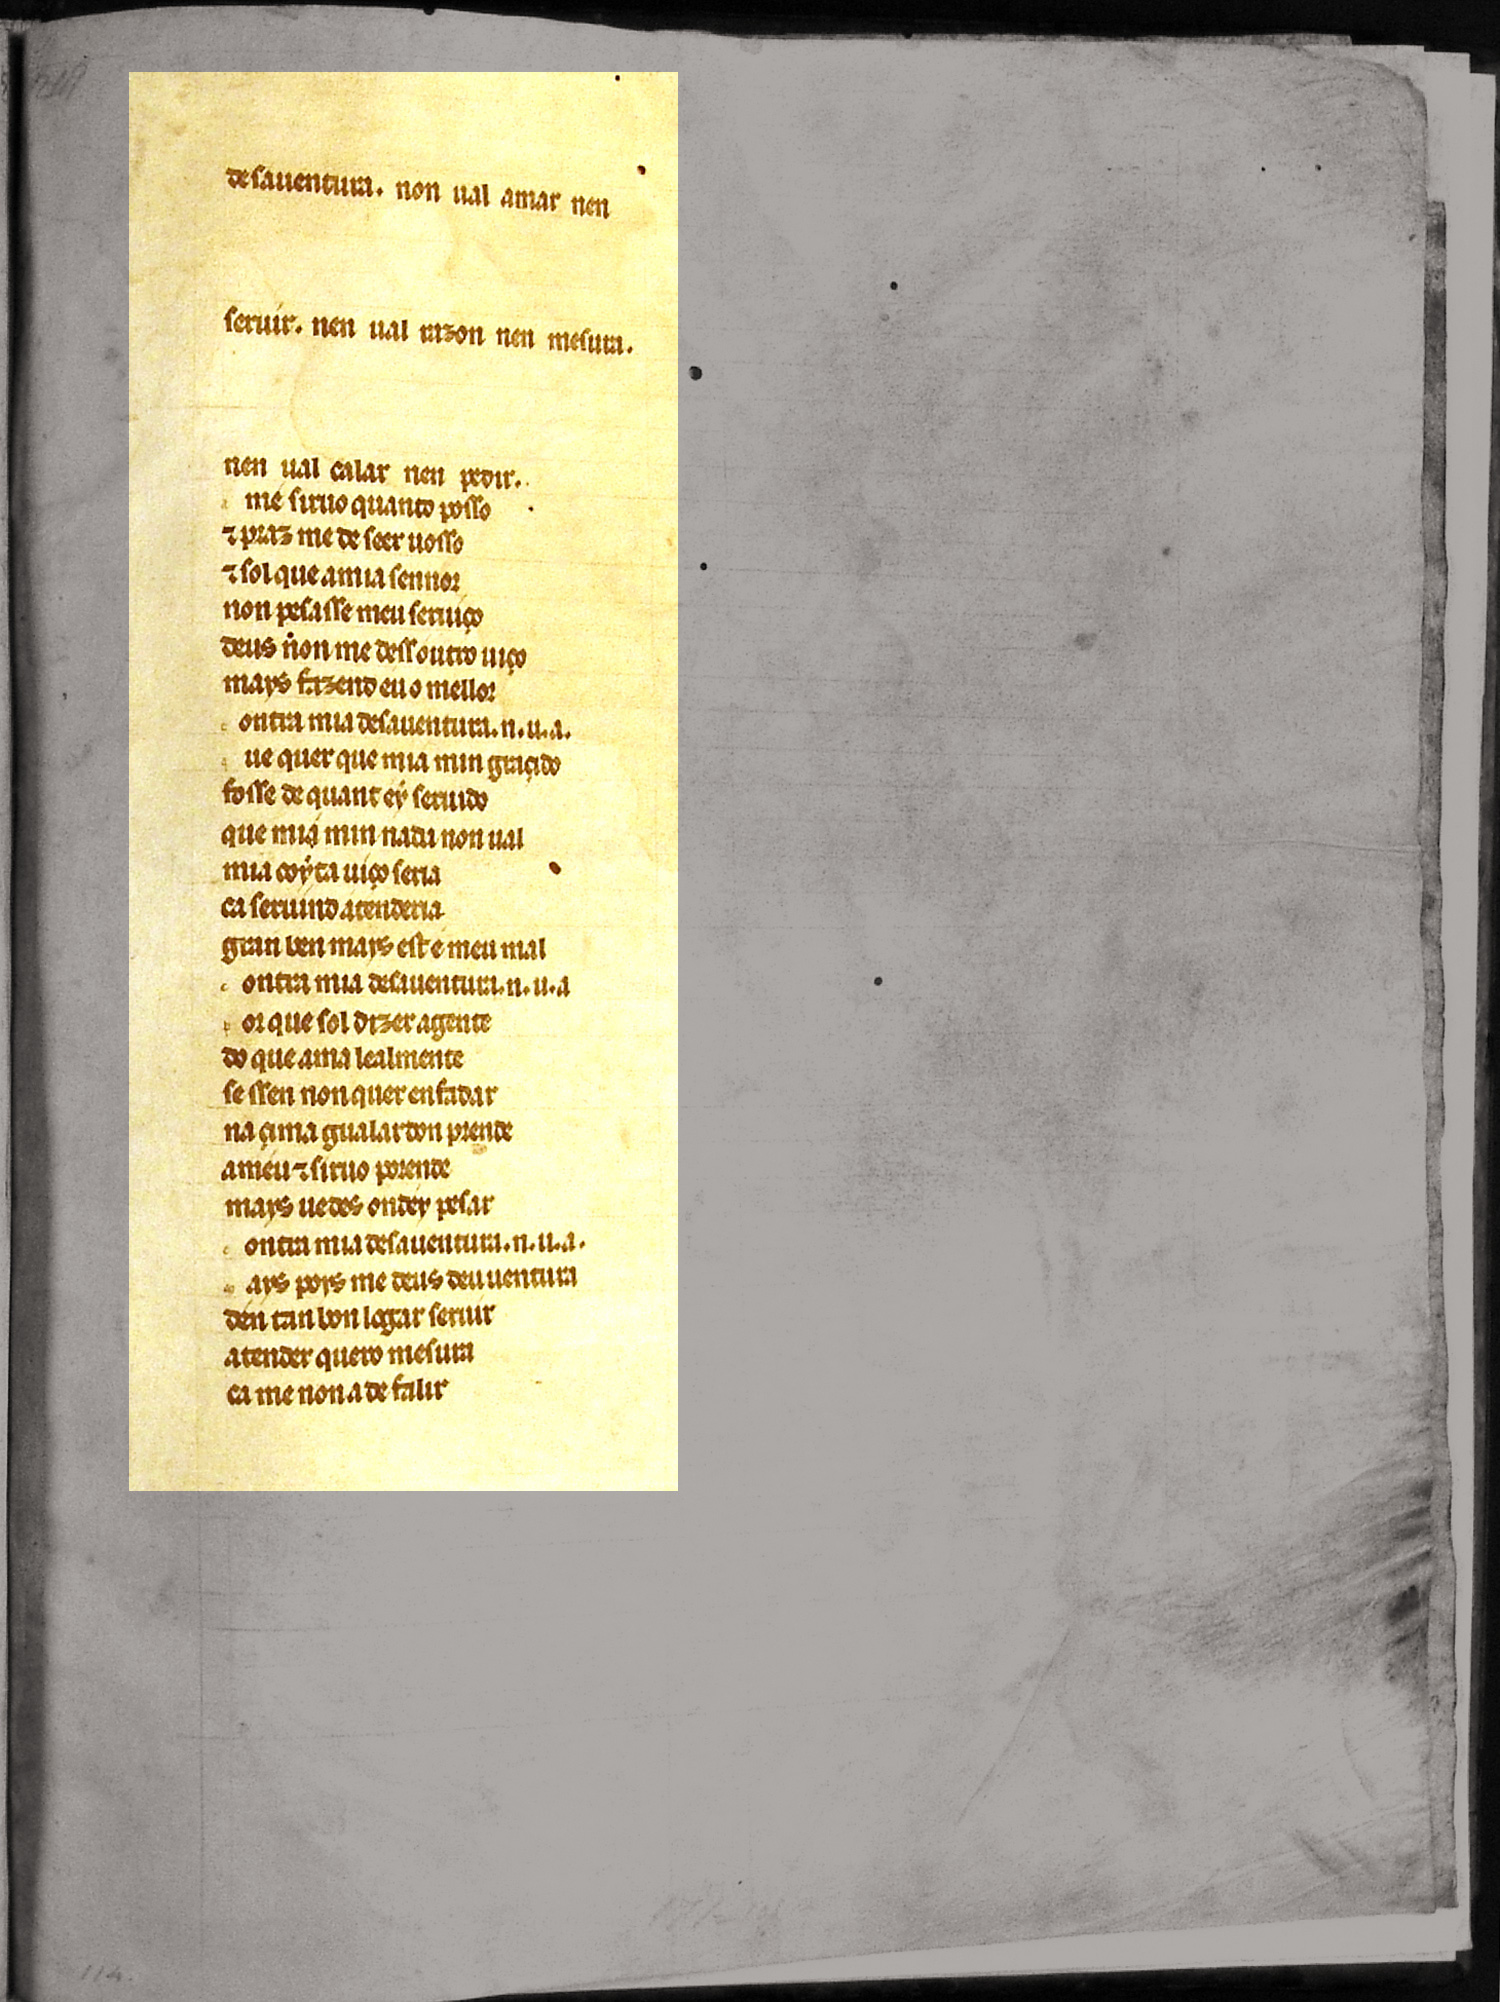 desauentura. non ual amar nen
seruir. nen ual razon nen mesura.
nen ual calar nen pedir.
me siruo quanto posso
⁊ praz me de seer uosso
⁊ sol que a mia sennor
non pesasse meu seruiço
deus non me dess outro uiço
mays fazend eu o mellor
c ontra mia desauentura. n. u. a.
ue quer que mia min graçido
fosse de quant eẏ seruido
que mia min nada non ual
mia coẏta uiço seria
ca seruind atenderia
gran ben mays est e meu mal
c ontra mia desauentura. n. u. a
p or que sol dizer a gente
do que ama lealmente
se ssen non quer enfadar
na çima gualardon prende
am eu ⁊ siruo porende
mays uedes ond ey pesar
c ontra mia desauentura. n. u. a.
m ays poys me deus deu uentura
d en tan bon logar seruir
atender quero mesura
ca me non a de falir